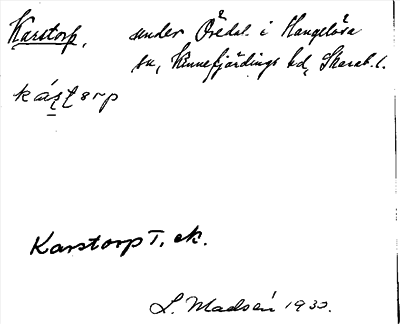 Karstorp, under Öredal i Hangelösa
sn, Kinnefjärdings hd, Skarab. l.
kás̱ṯorp
Karstorp T. ek.
L. Madsén 1930.